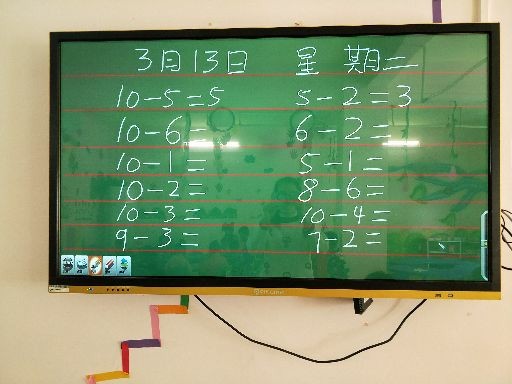 3月13日 星期二
10-5=5 5-2=3
10-6= 6-2=
10-1= 5-1=
10-2= 8-6=
10-3= 10-4=
9-3= 7-2=